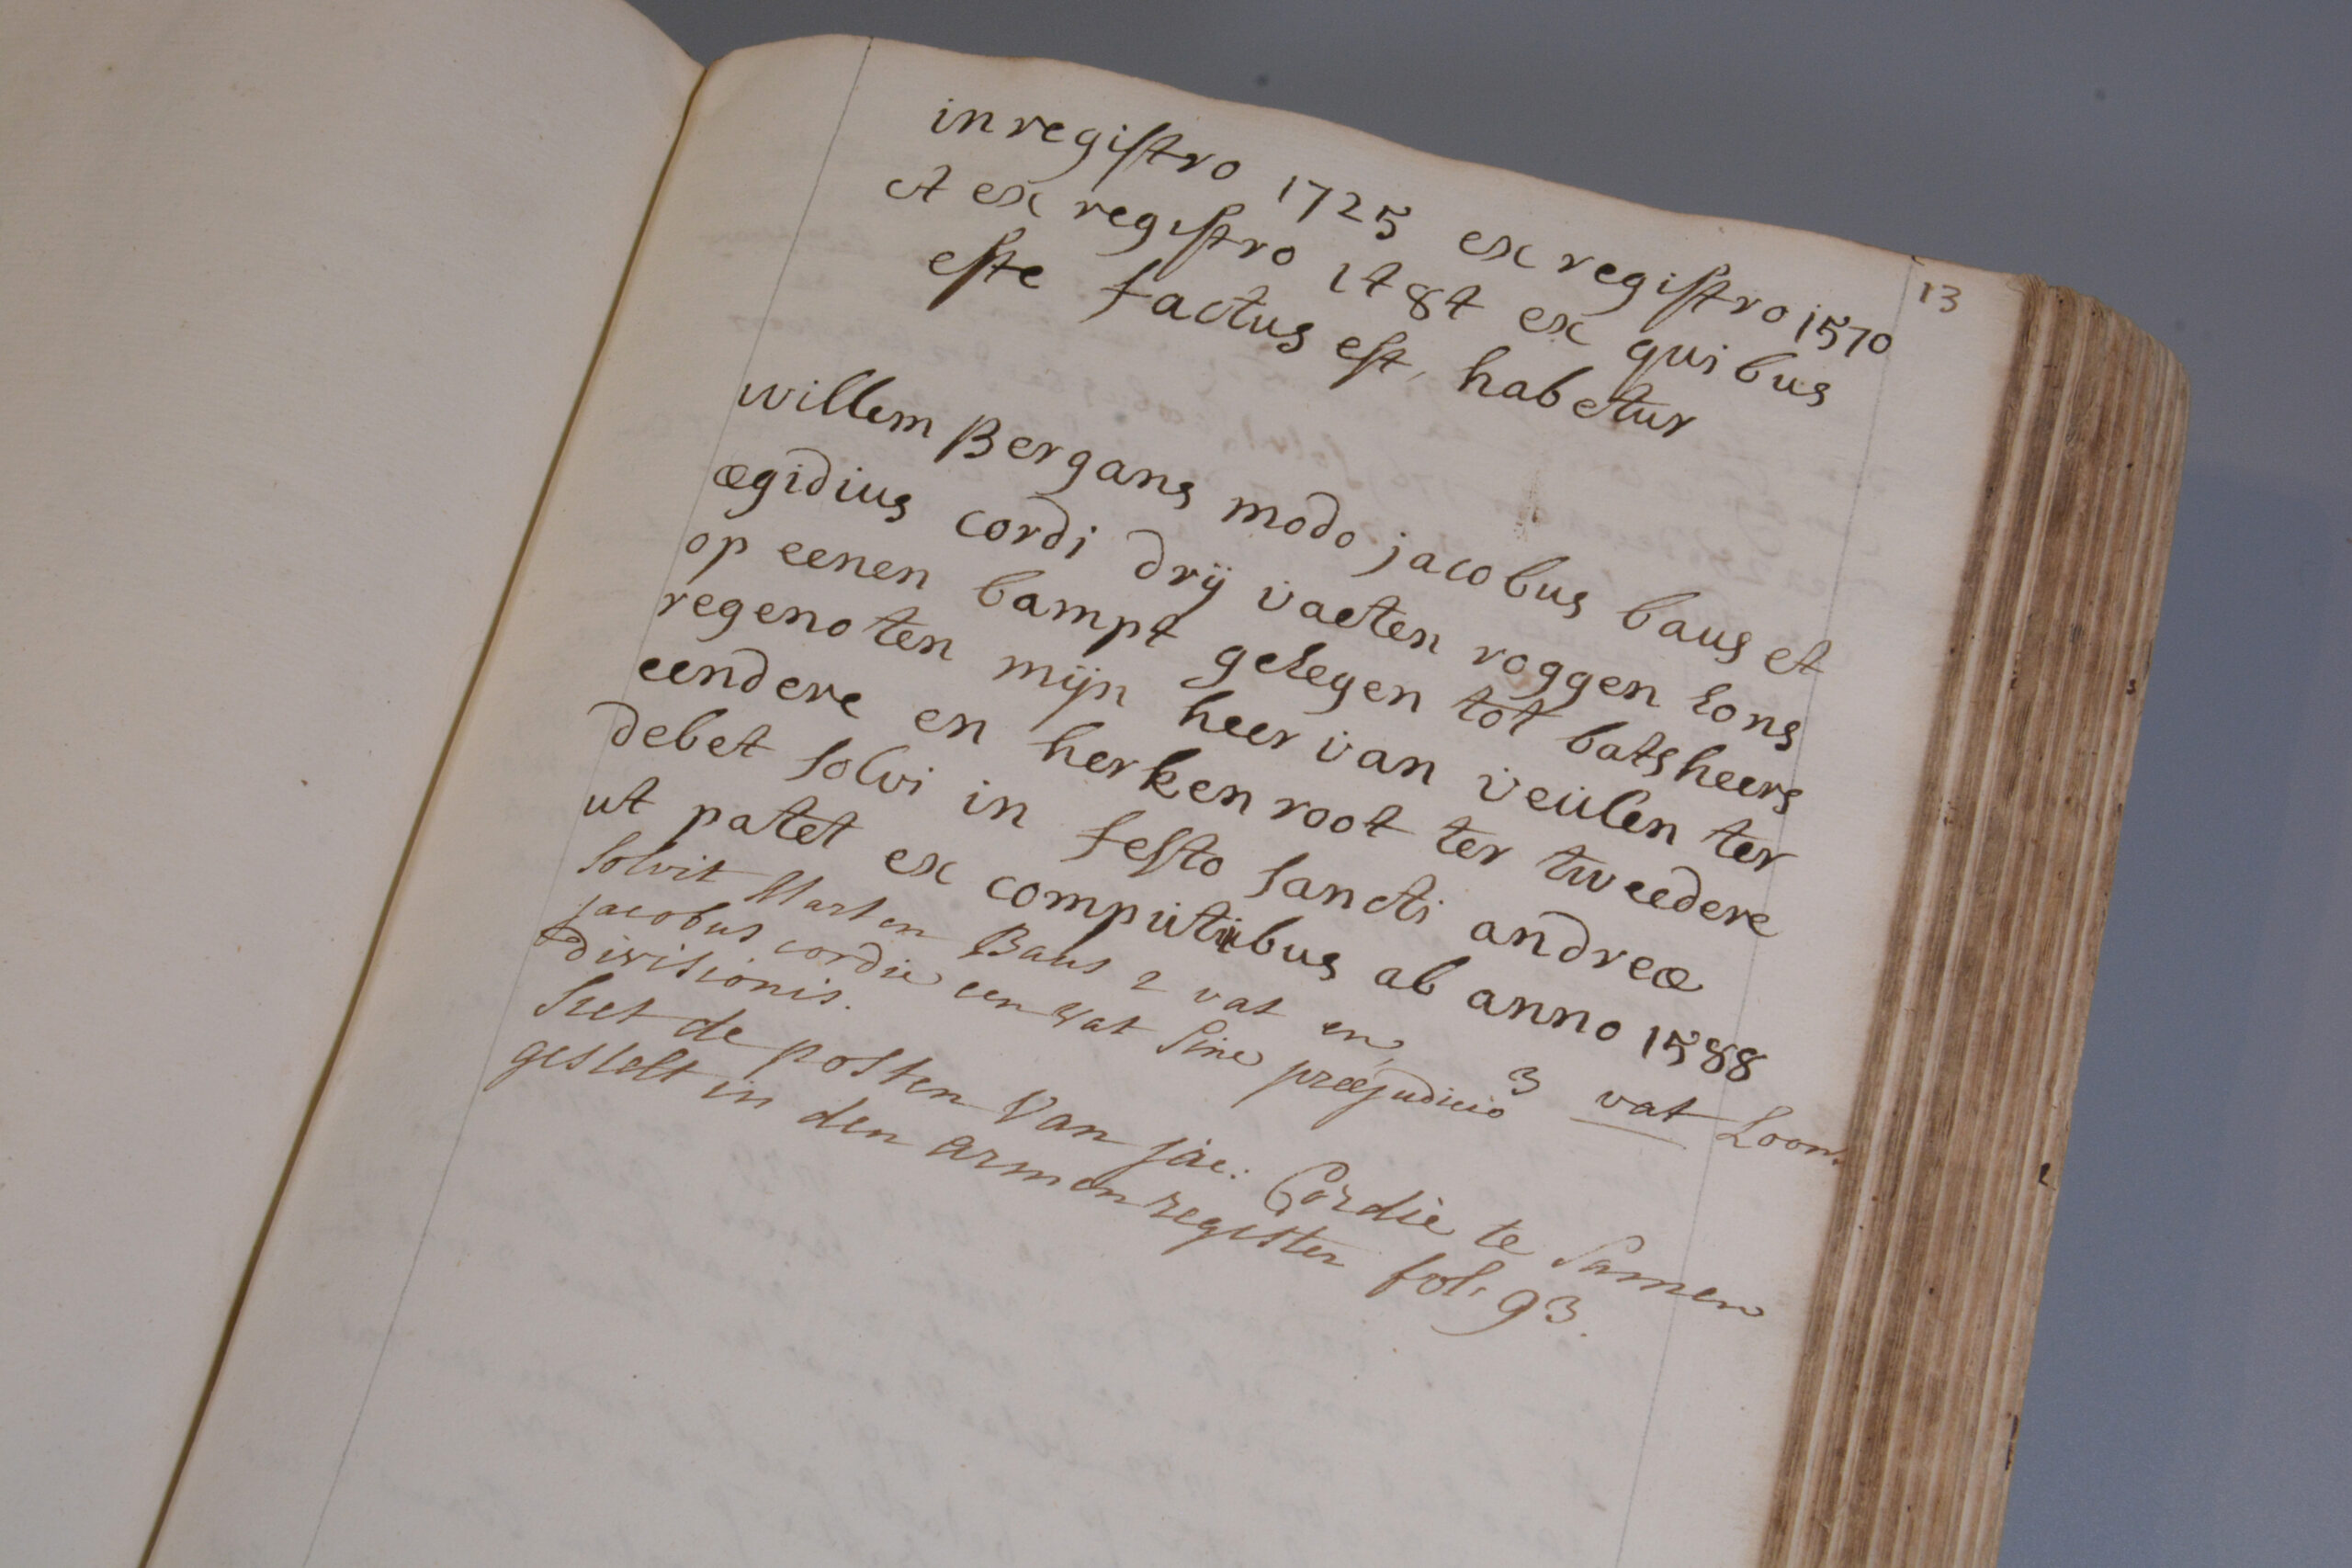 13
in registro 1725 ex registro 1570
et ex registro 1484 ex quibus
este factus est, habetur
willem Bergans modo jacobus baus et
ægidius cordi drij vaeten roggen lons
op eenen bampt gelegen tot batsheers
regenoten mijn heer van veulen ter
eendere en herkenroot ter tweedere
debet solvi in festo sancti andreæ
ut patet ex computibus ab anno 1588
solvit Marten Baus 2 vat en
jacobus cordie een vat sine præjudicio 3 vat Loon.
divisionis.
siet de posten van jac: Cordie te samen
gestelt in den armenregister fol. 93.